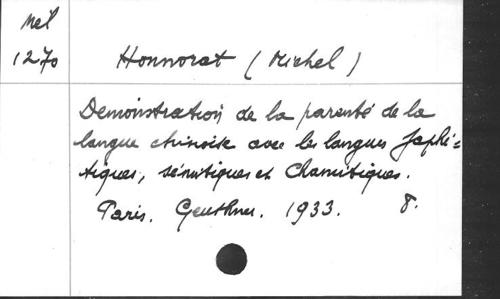 Mél
1270
Honnorat (Michel)
Démonstration de la parenté de la
langue chinoise avec les langues Japhé=
tiques, sémitiques et Chamitiques.
Paris. Geuthner. 1933. 8.